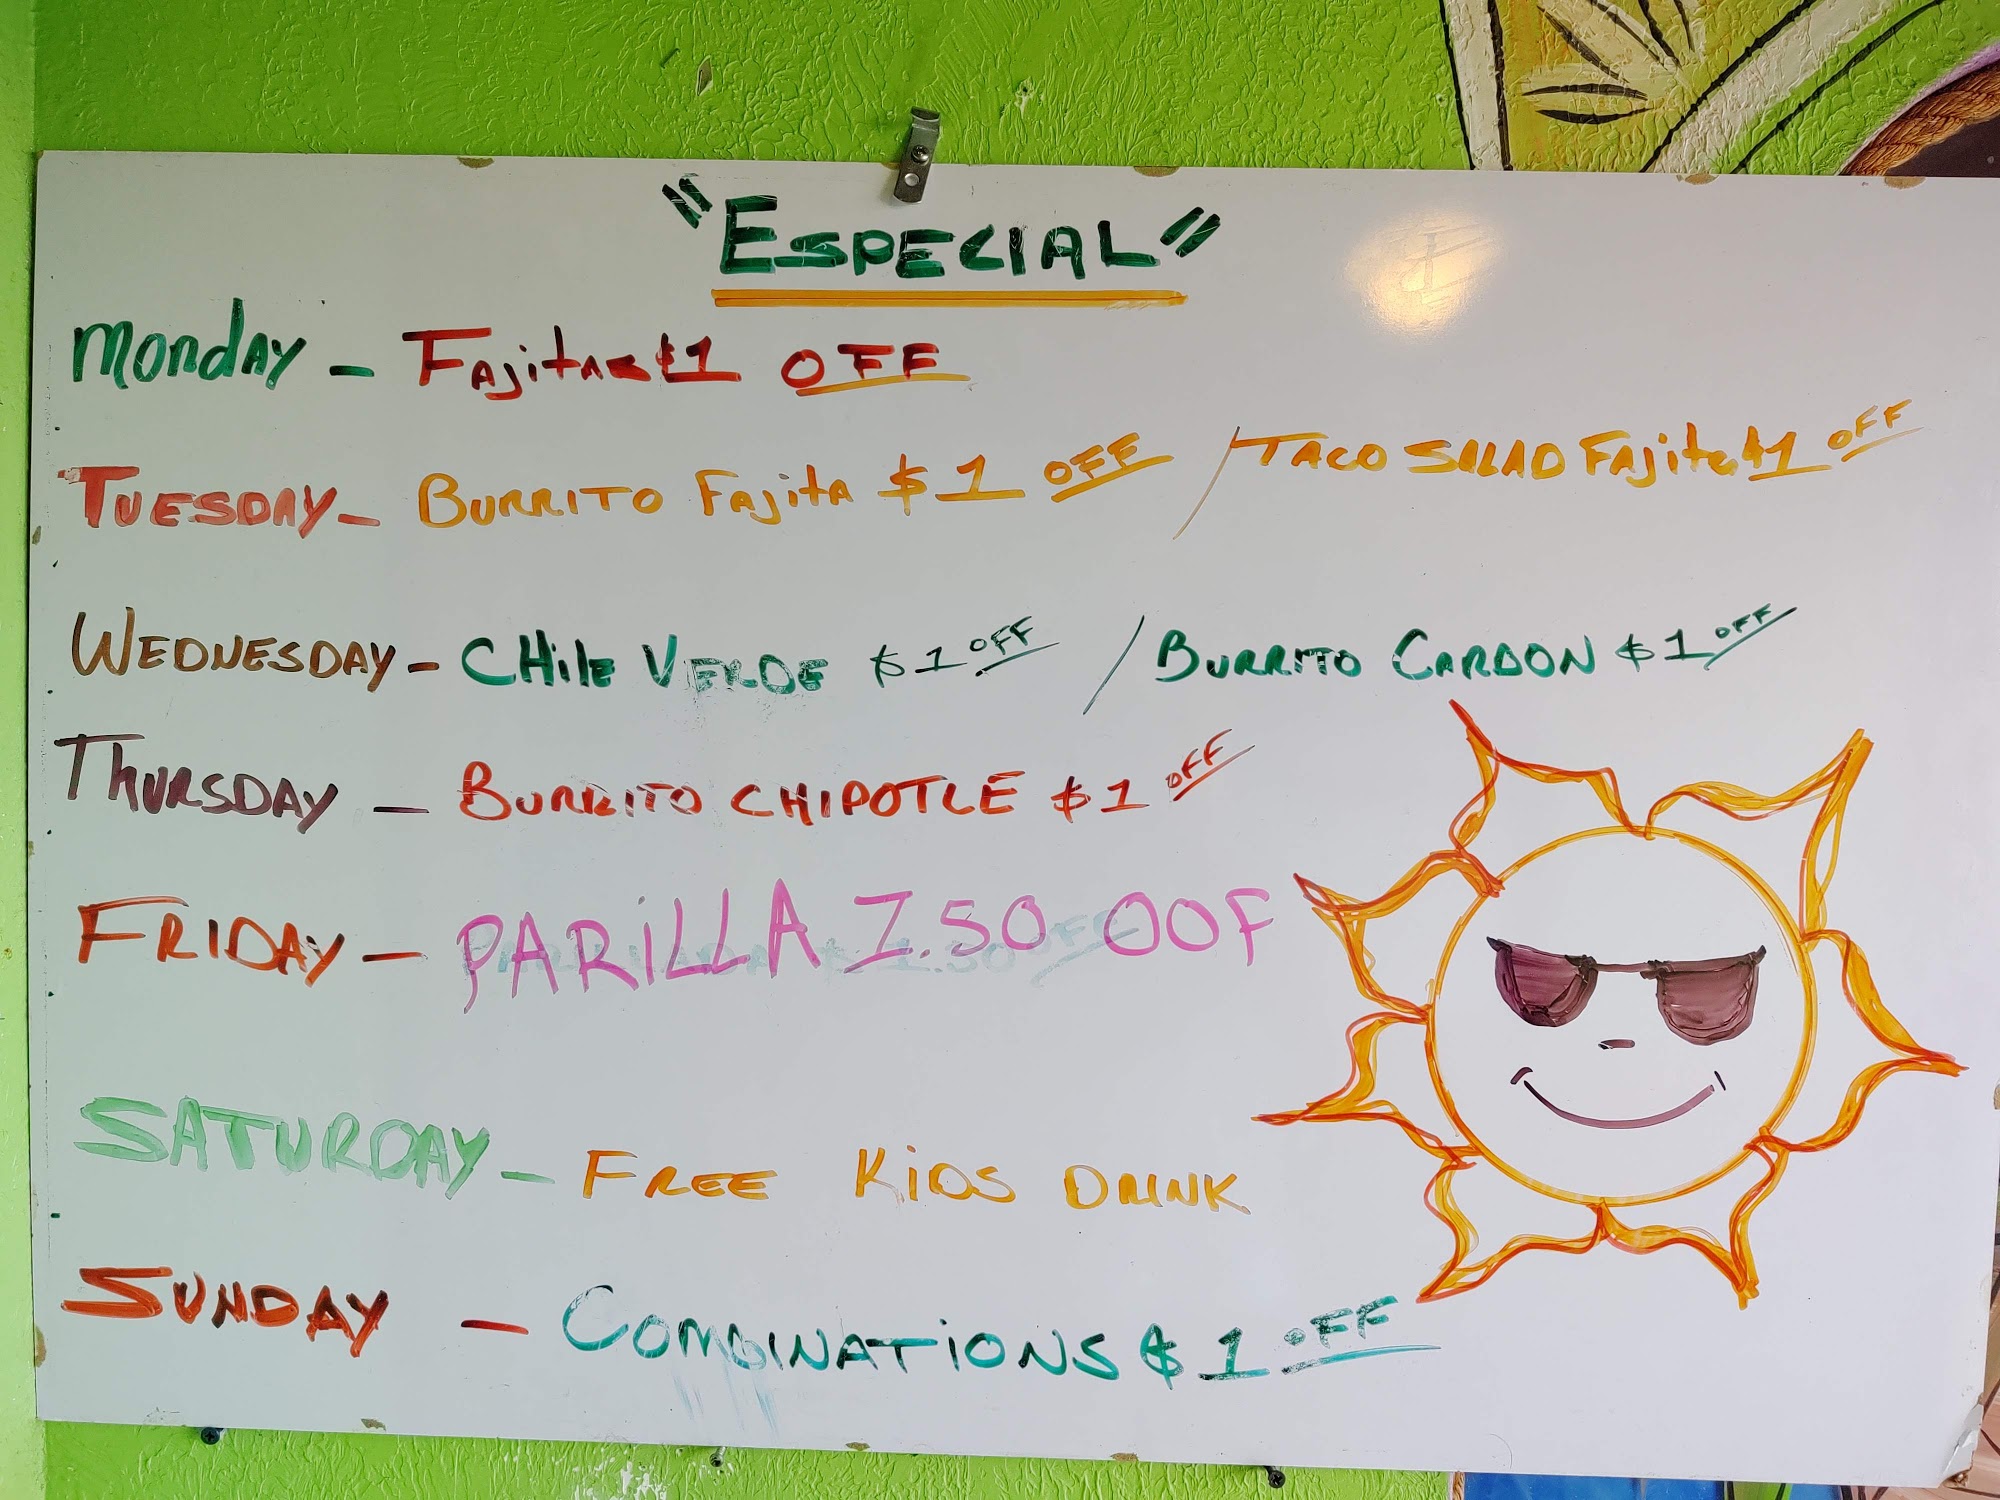 "ESPECIAL"
Monday - Fajitas $1 OFF
TUESDAY - BURRITO Fajita $1 OFF / TACO SALAD Fajita $1 OFF
WEDNESDAY - CHile VERDE $1 OFF / BURRITO CARDON $1 OFF
THURSDAY - BURRITO CHIPOTLE $1 OFF
FRIDAY - PARiLLA 1.50 OOF
SATURDAY - FREE KiDS DRINK
SUNDAY - COMBINATiONS $1 OFF